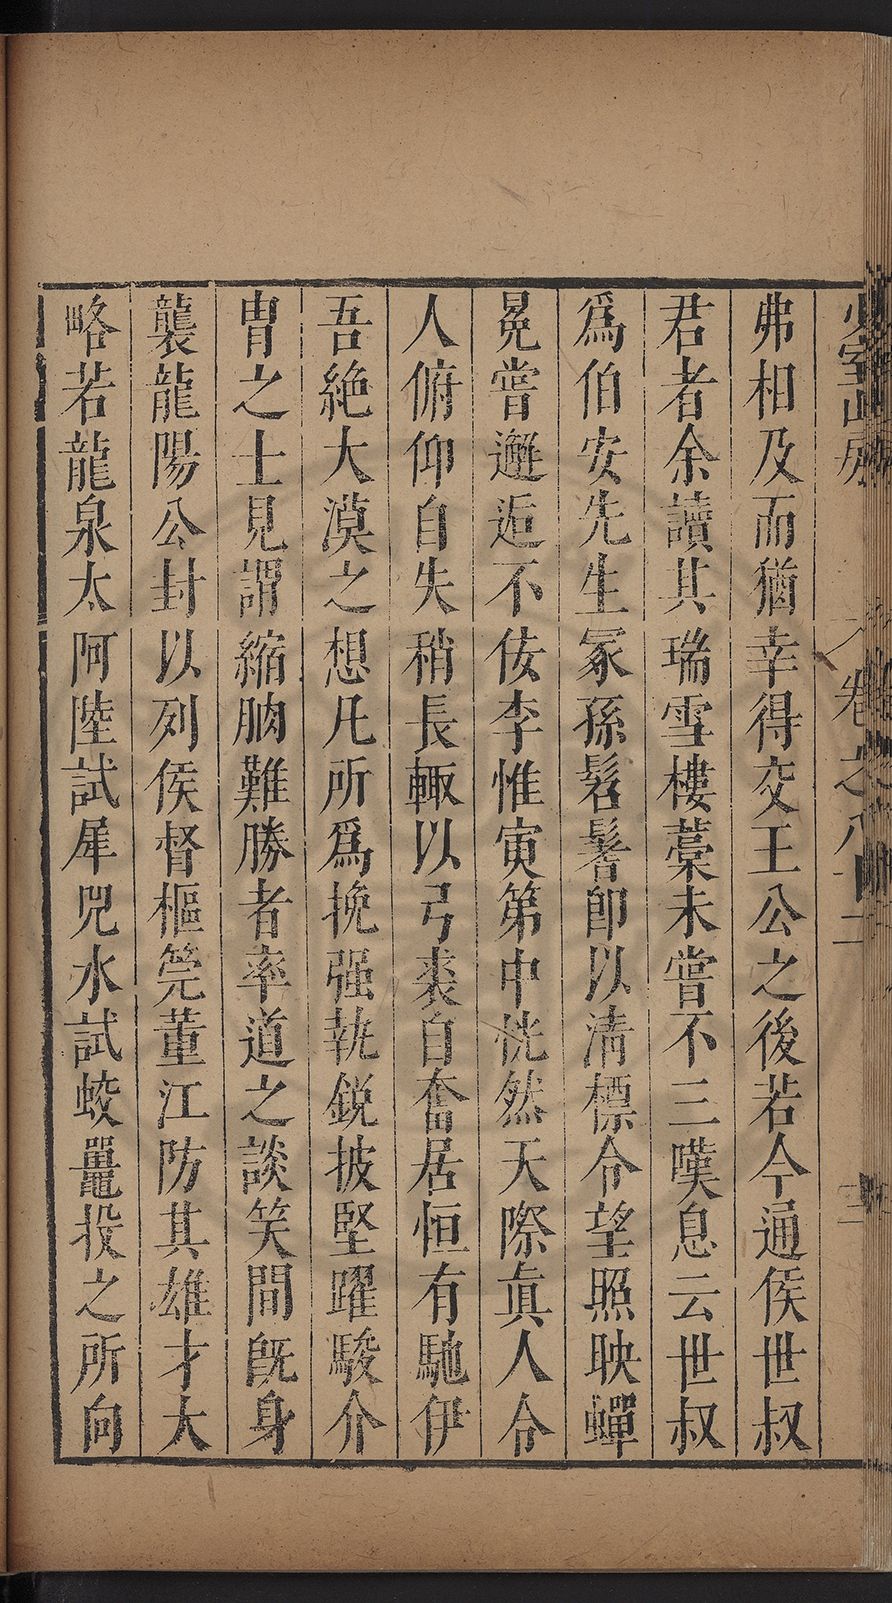 弗相及而猶幸得交王公之後若今通侯世叔
君者余讀其瑞雪樓藁未嘗不三嘆息云世叔
爲伯安先生冢孫髫髻卽以淸標令望照映蟬
冕嘗邂逅不佞李惟寅第中恍然天際眞人令
人俯仰自失稍長輒以弓裘自奮居恒有馳伊
吾絶大漠之想凡所爲挽强執鋭披堅躍駿介
胄之士見謂縮朒難勝者率道之談笑間旣身
襲龍陽公封以列侯督樞筦董江防其雄才大
略若龍泉太阿陸試犀兕水試蛟鼉投之所向
卷之八十二